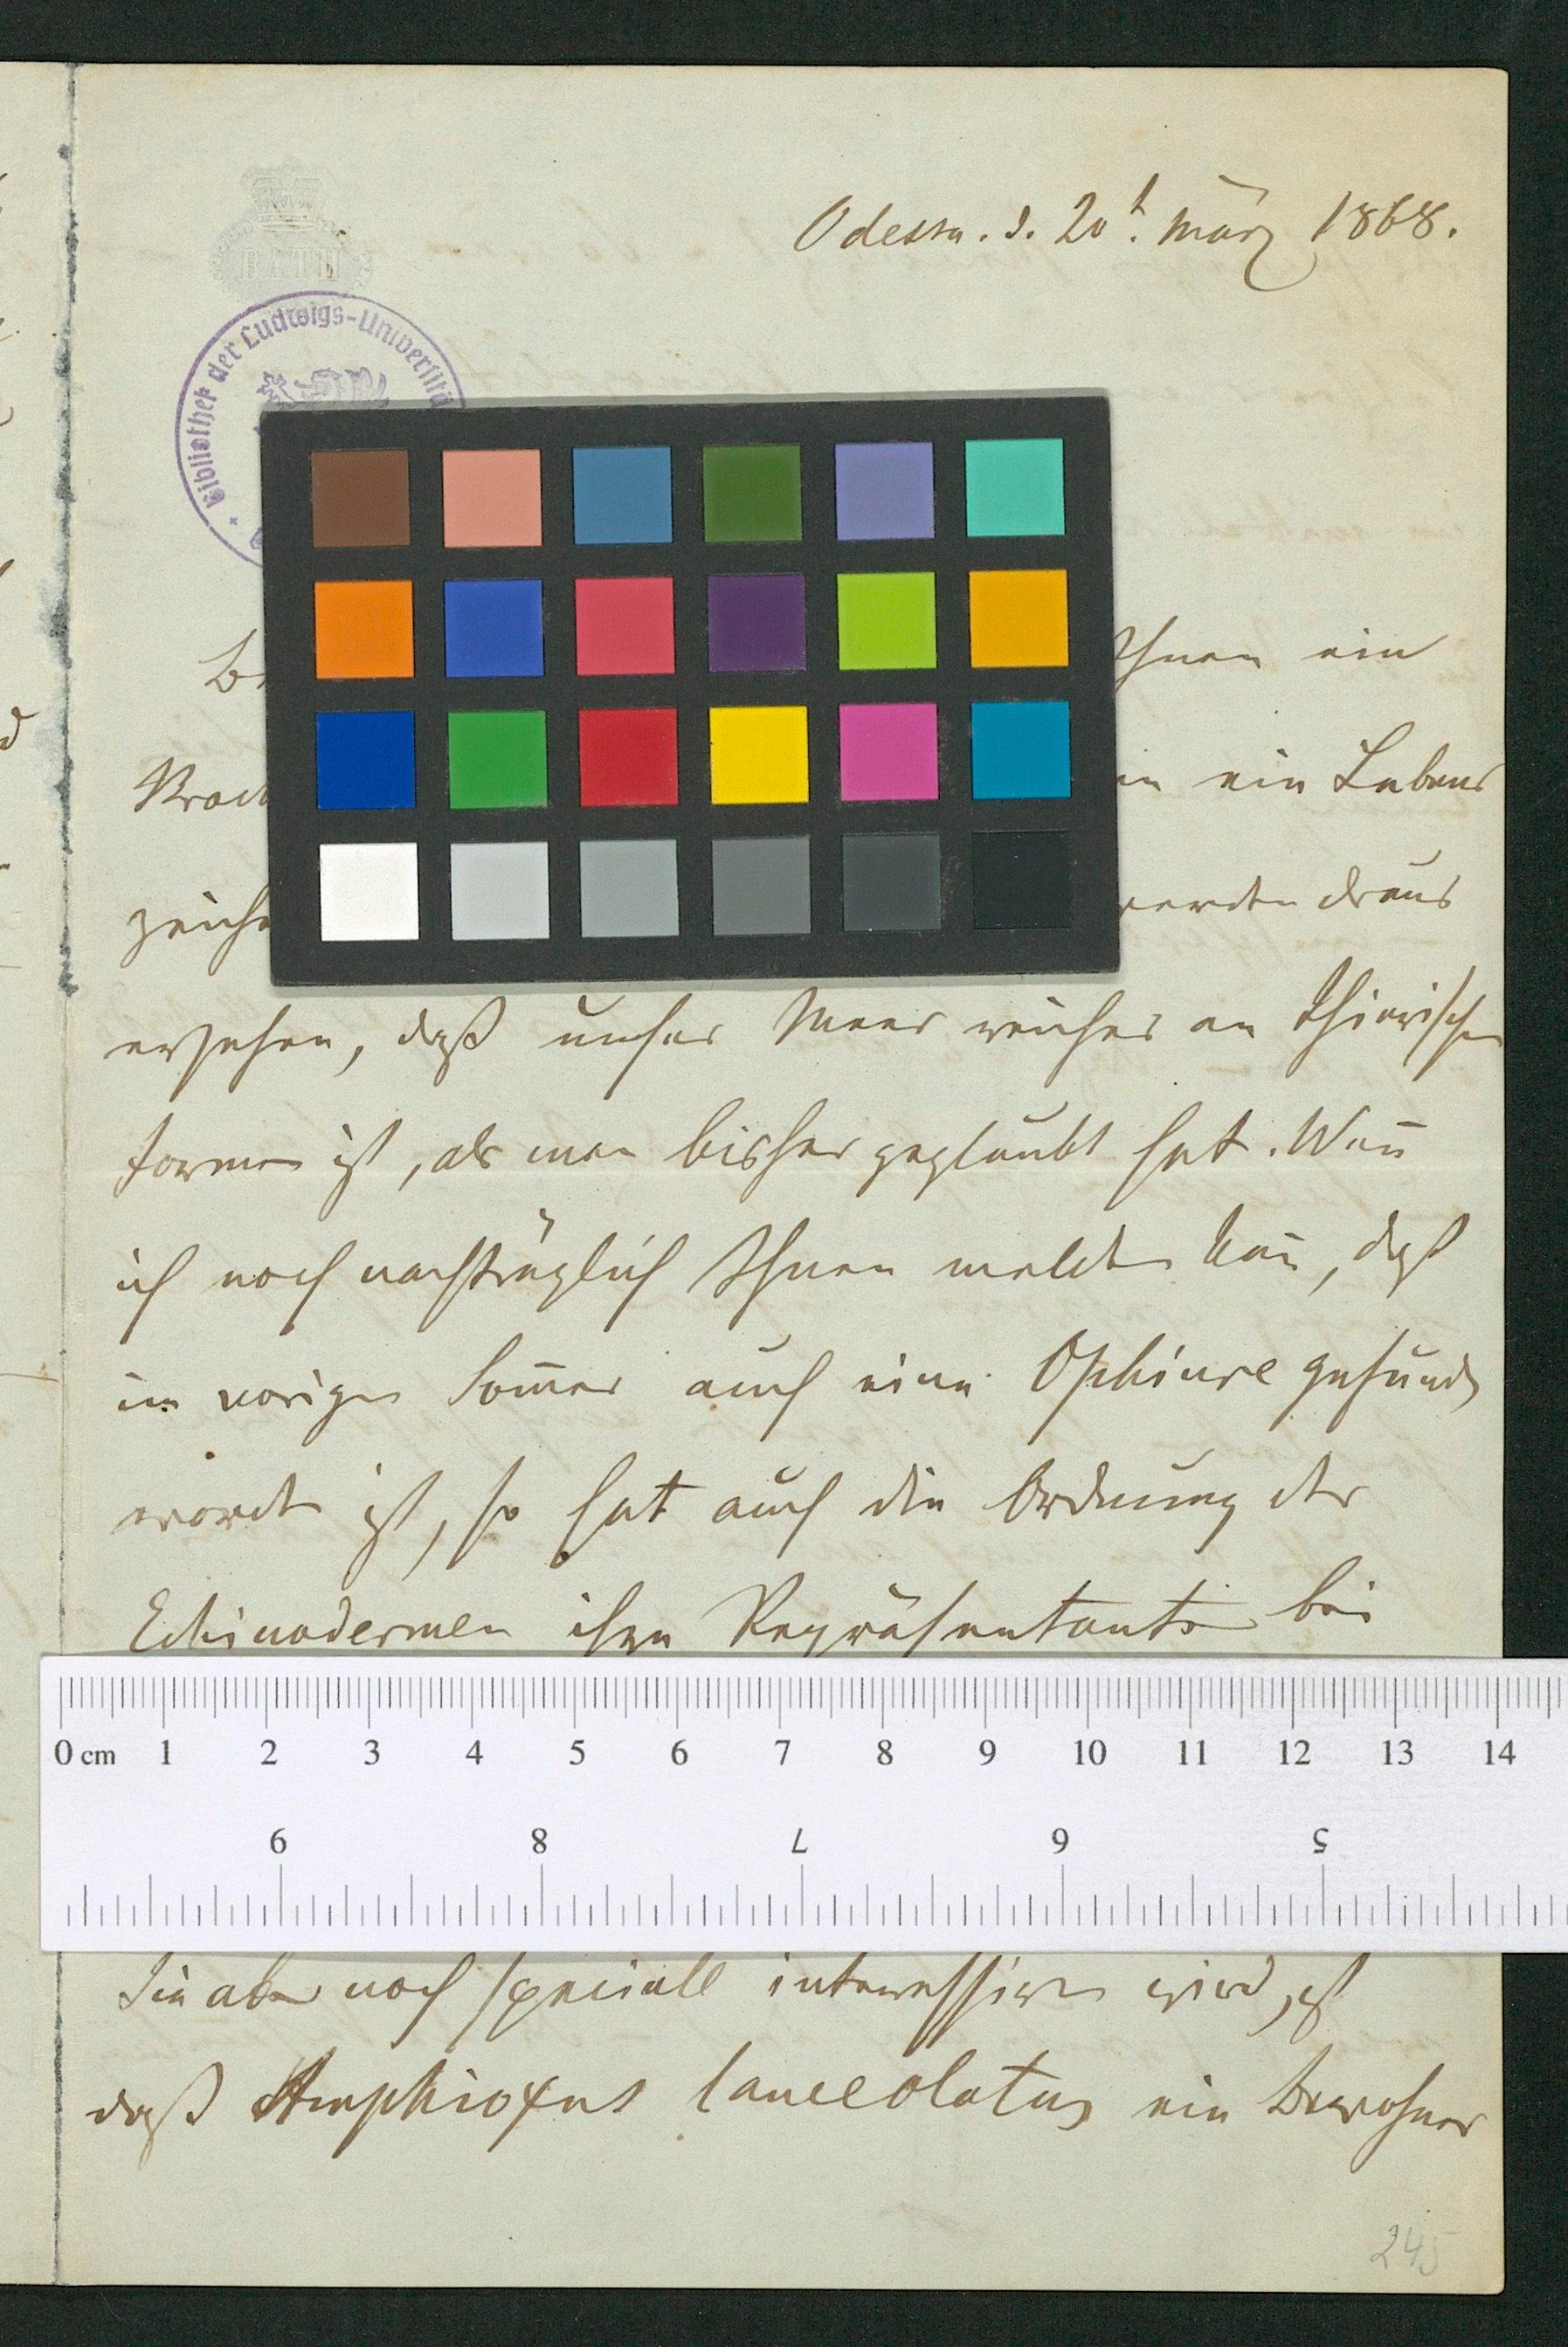 Odessa. d. 20t. März 1868.
BATH
Bibliothek der Ludwigs-Universitä
Ihnen ein
ein Lebens
werden draus
ersehen, daß unser Meer reicher an thierischen
Formen ist, als man bisher geglaubt hat. Wen̅
ich noch nachträglich Ihnen melden kan̅, daß
im vorigen Som̅er auch eine Ophiure gefunden
worden ist, so hat auch die Ordnung der
Echinodermen ihren Repräsentanten bei
0 cm 1 2 3 4 5 6 7 8 9 10 11 12 13 14
9 8 7 6 5
Sie aber noch speciell interessiren wird, ist
daß Amphioxus lanceolatus ein Bewohner
245